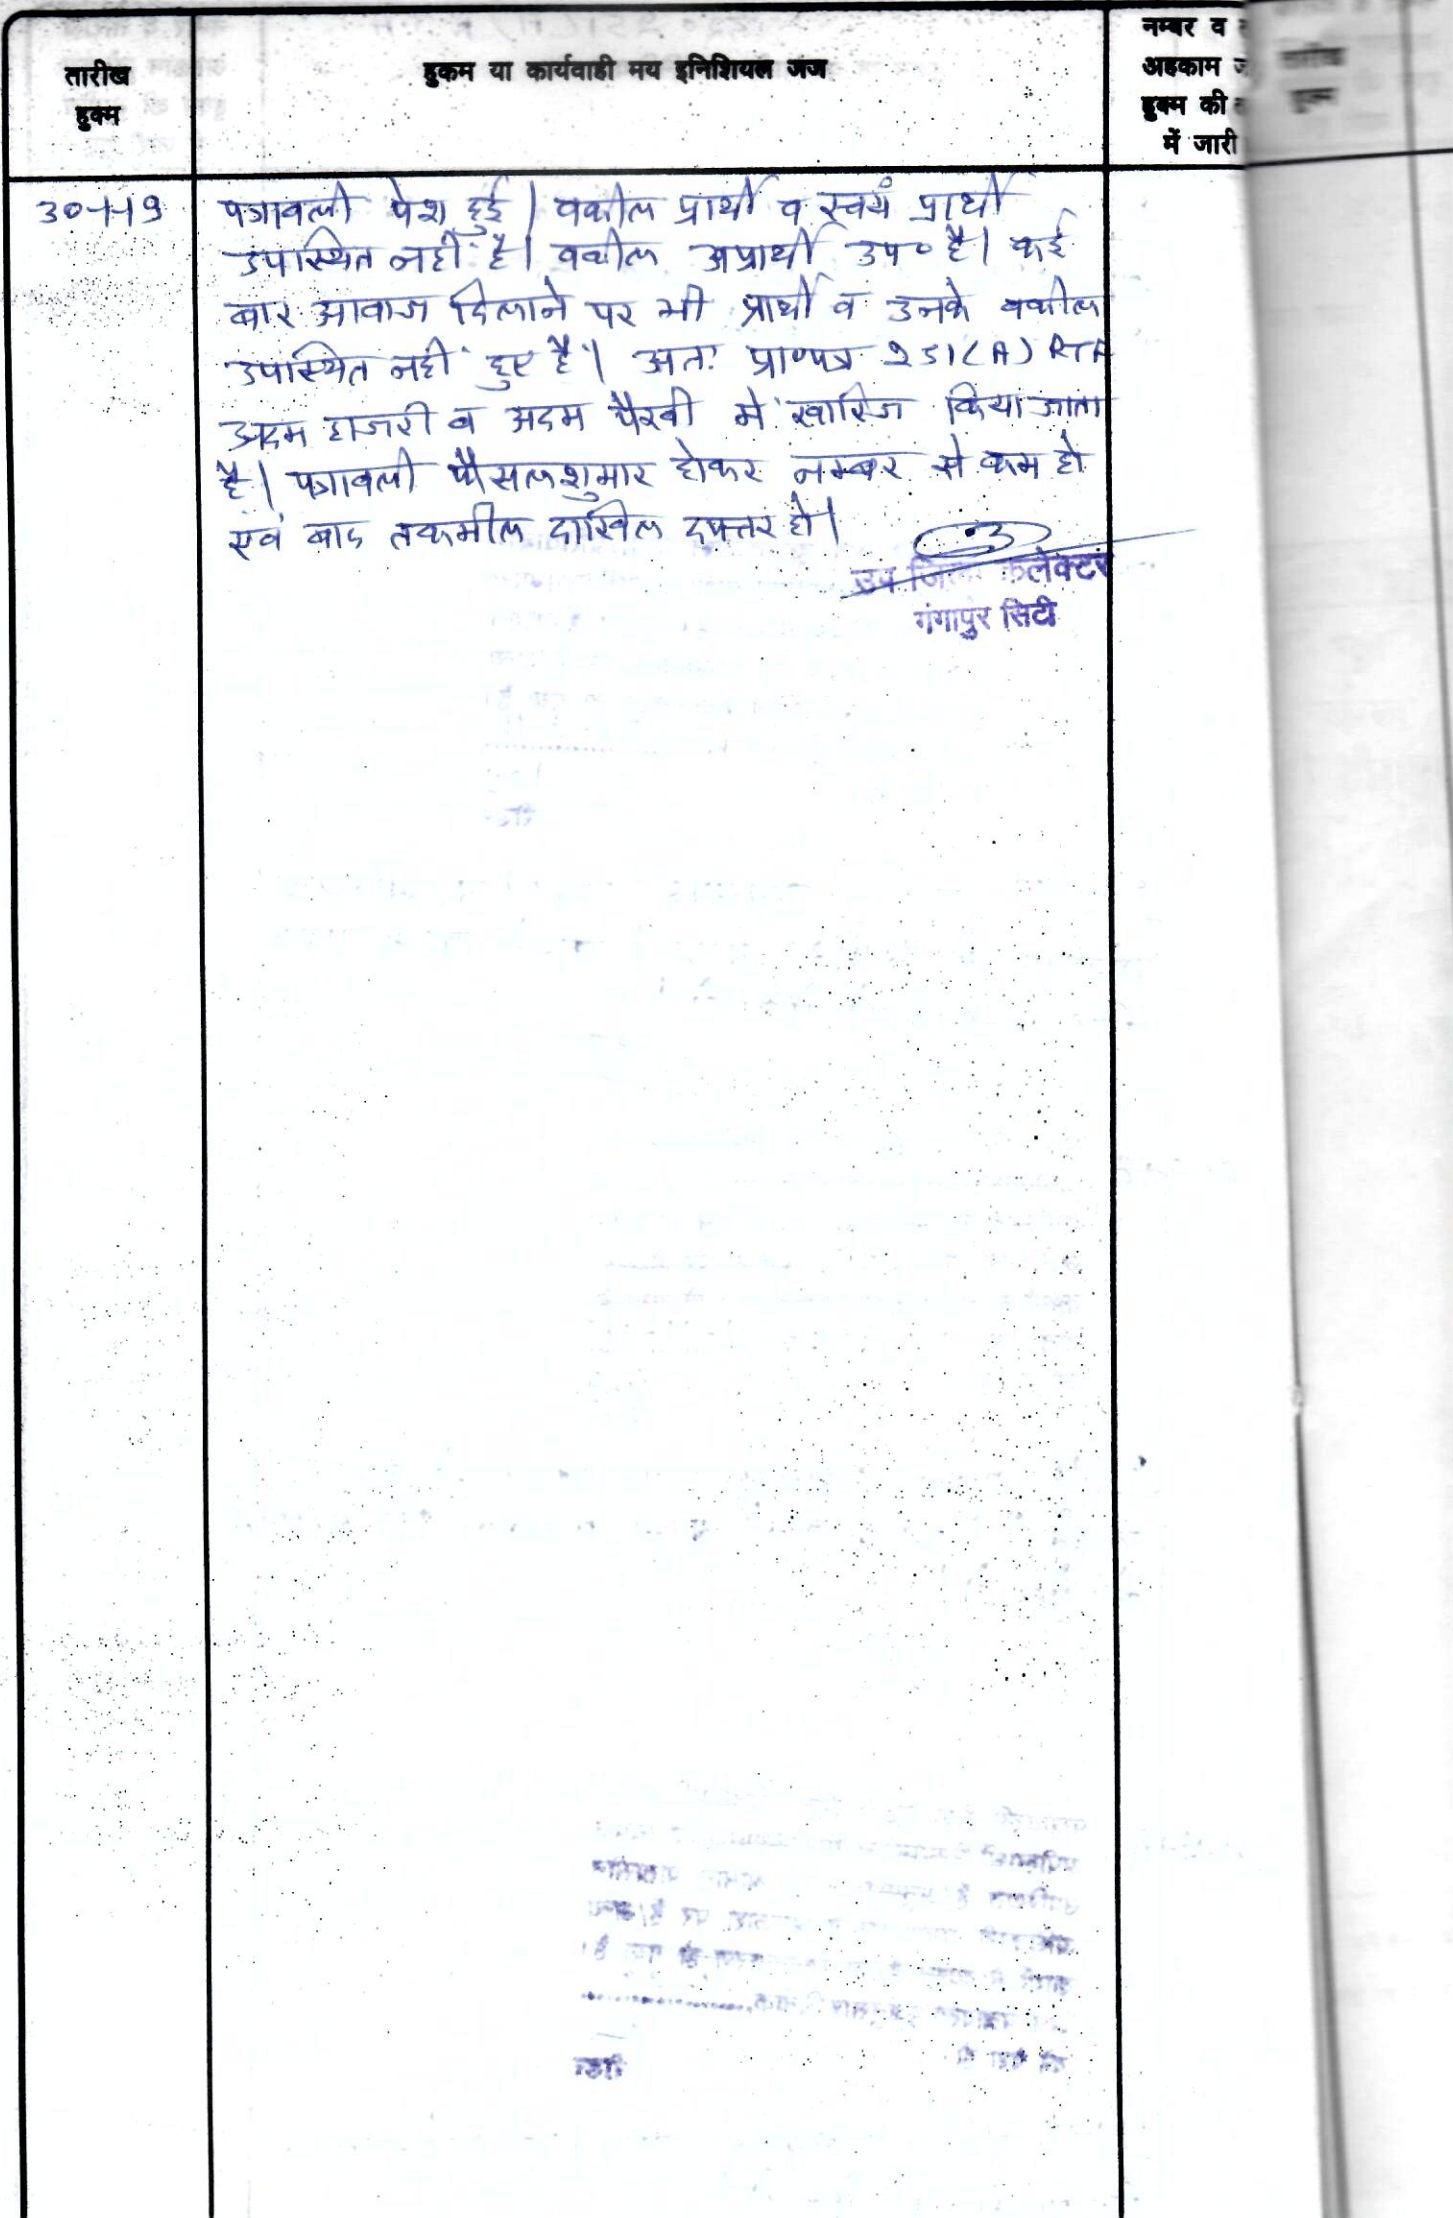 तारीख
हुक्म
हुकम या कार्यवाही मय इनिशियल जज
नम्बर व
अहकाम
हुक्म की
में जारी
तारीख
हुक्म
30-1-19
पत्रावली पेश हुई। वकील प्रार्थी व स्वयं प्रार्थी
उपास्थित नहीं है। वकील अप्रार्थी उप० है। कई
बार आवाज दिलाने पर भी प्रार्थी व उनके वकील
उपास्थित नहीं हुए है। अतः प्रा०पत्र 251(A) RTA
अदम हाजरी व अदम पैरवी में खारिज किया जाता
है। पत्रावली फैसलशुमार होकर नम्बर से कम हो
एवं बाद तकमील दाखिल दफ्तर हो।
उप जिला कलेक्टर
गंगापुर सिटी